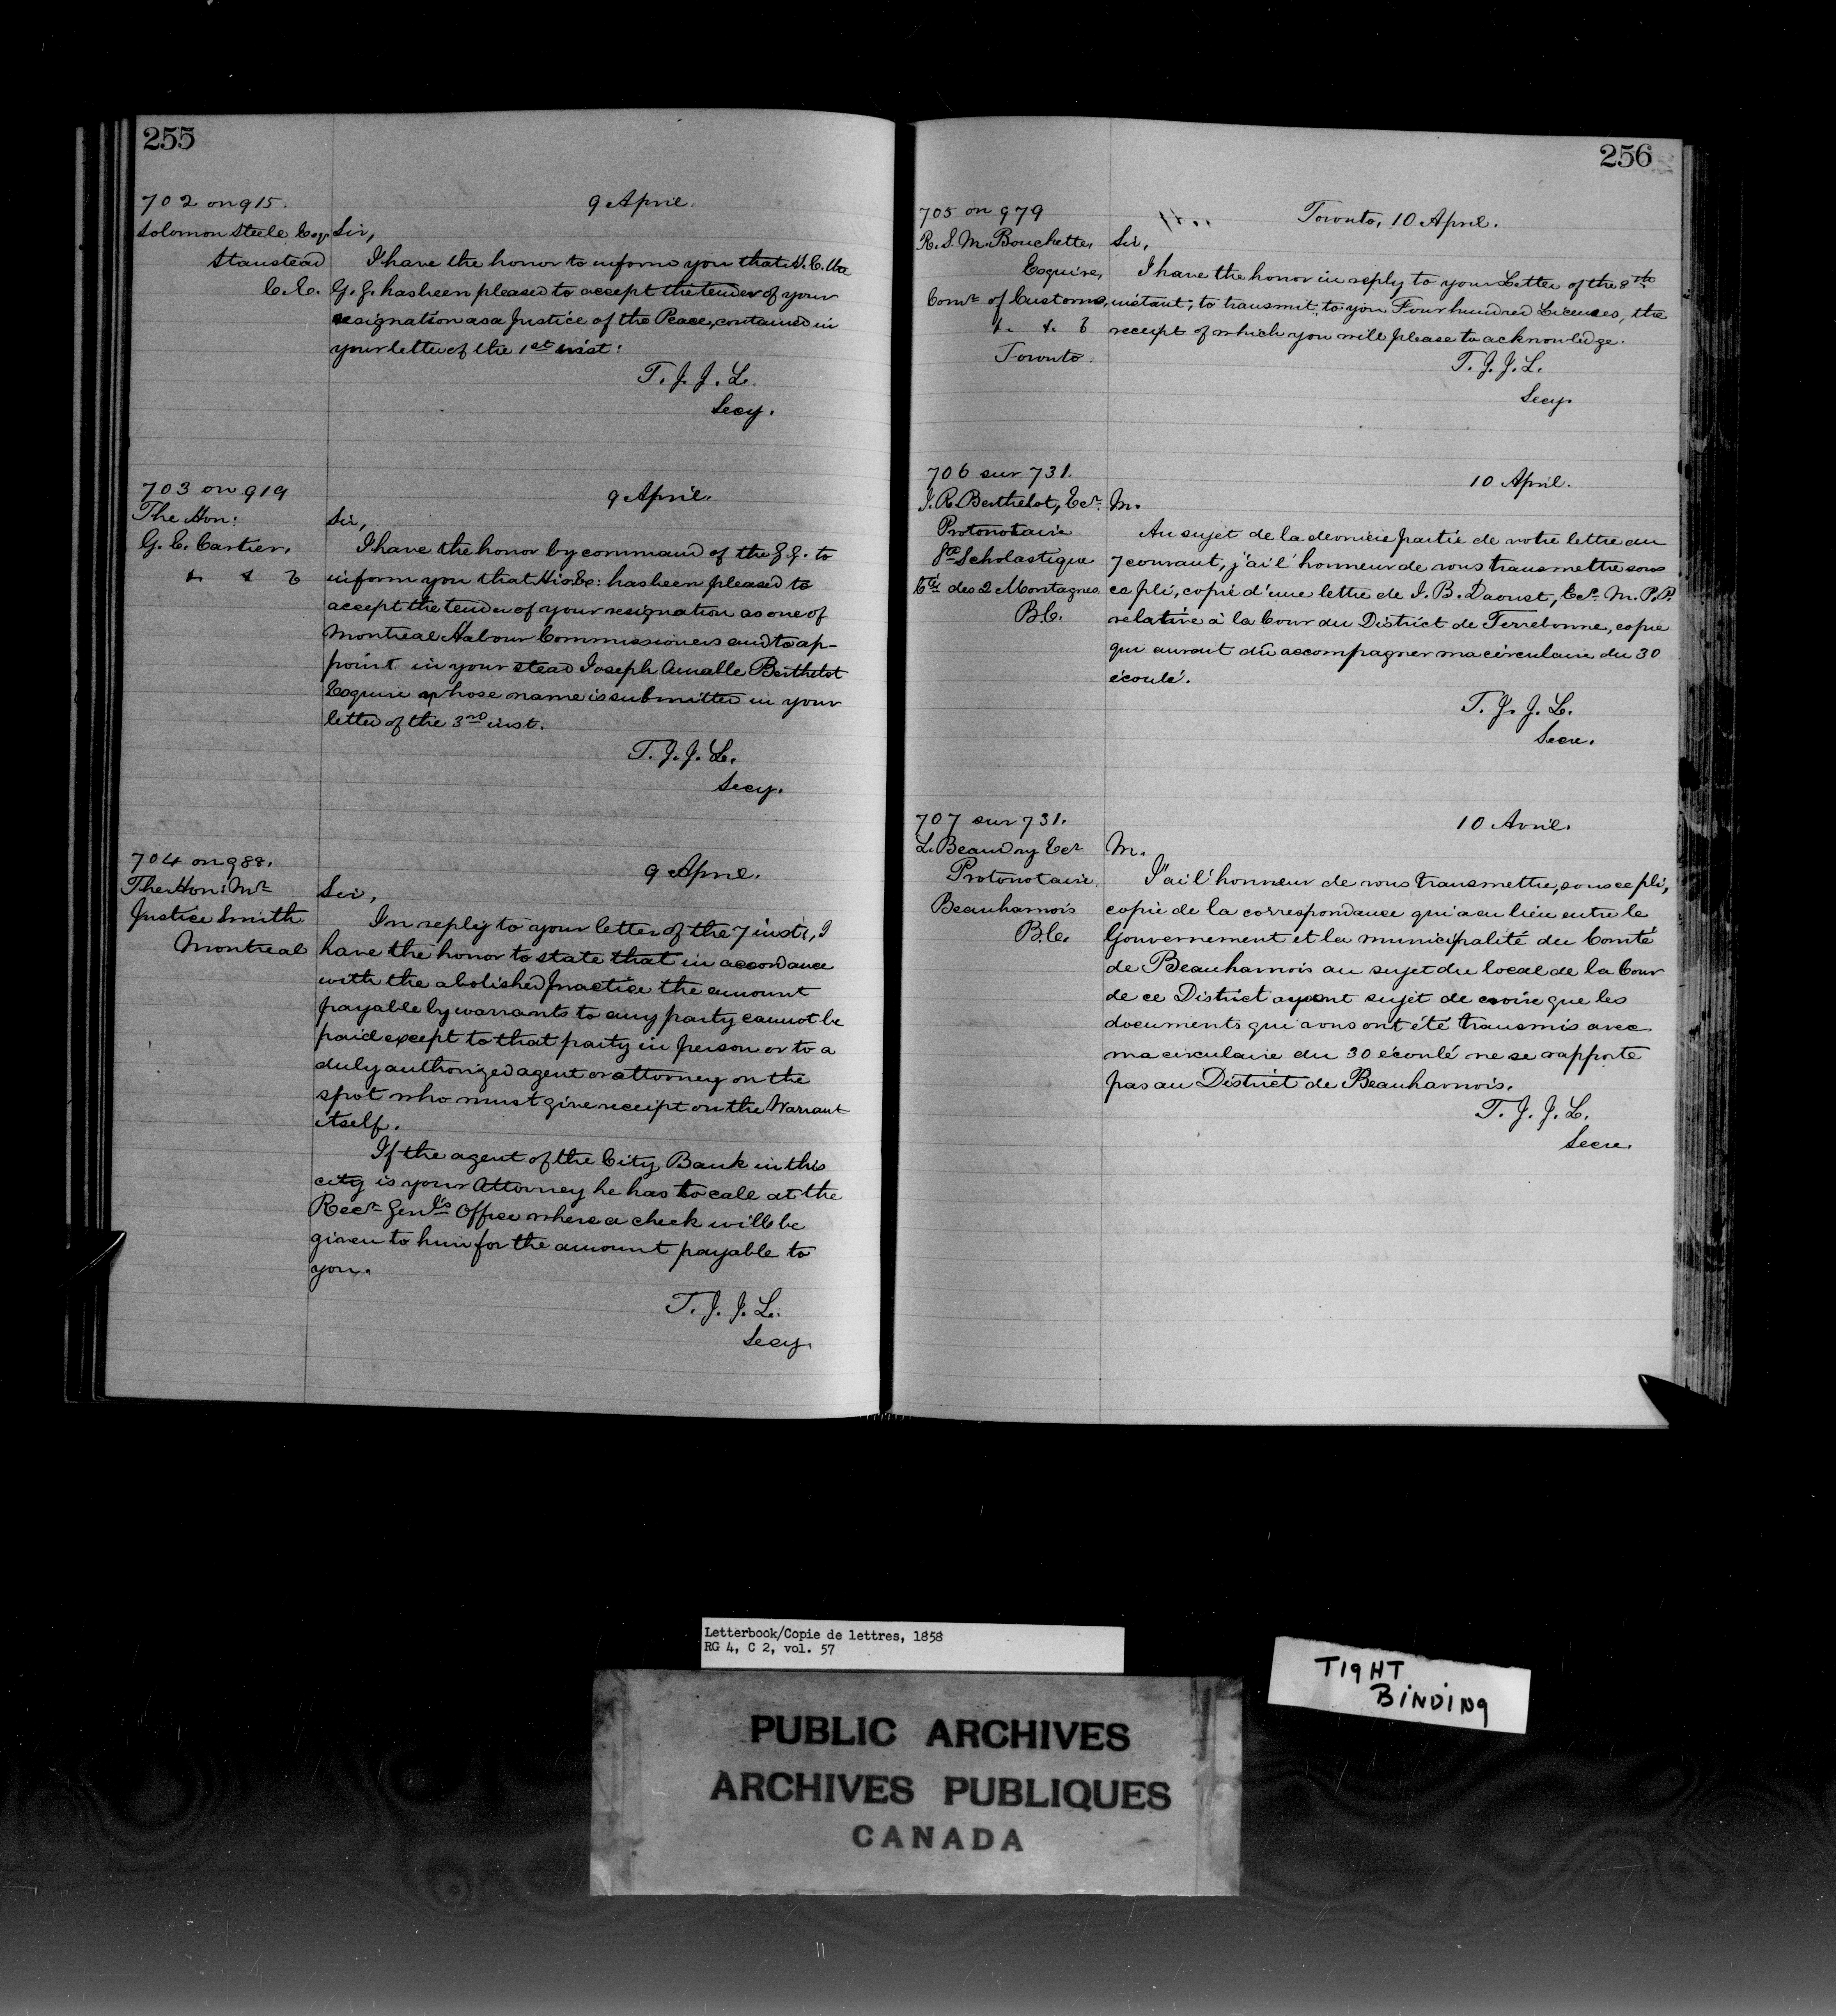 255
702 on 915.
9 April.
Solomon Steele Esqr
Stanstead
C.E.
Sir,
I have the honor to inform you that H. E. the
G. G. has been pleased to accept the tender of your
resignation as a Justice of the Peace, contained in
your letter of the 1st inst:
T. J. J. L.
Secy.
703 on 919
9 April.
The Hon:
G. E. Cartier,
&. & &
Sir,
I have the honor by command of the G. G. to
inform you that His Ex: has been pleased to
accept the tender of your resignation as one of
Montreal Habour Commissioners and to ap-
point in your stead Joseph Amable Berthelot
Esquire whose name is submitted in your
letter of the 3rd inst.
T. J. J. L.
Secy.
704 on 988.
9 April.
The Hon: Mr
Justice Smith
Montreal
Sir,
In reply to your letter of the 7 inst:, I
have the honor to state that in accordance
with the abolished practice the amount
payable by warrants to any party cannot be
paid except to that party in person or to a
duly authorized agent or attorney on the
spot who must give receipt on the Warrant
itself.
If the agent of the City Bank in this
city is your Attorney he has to call at the
Recr Genl's Office where a check will be
given to him for the amount payable to
you.
T. J. J. L.
Secy.
256
705 on 979
Toronto, 10 April.
R. S. M. Bouchette,
Esquire,
Comr of Customs,
&. &. &
Toronto.
Sir,
I have the honor in reply to your Letter of the 8th
instant, to transmit to you Four hundred Licenses, the
receipt of which you will please to acknowledge.
T. J. J. L.
Secy.
706 sur 731.
10 April.
J. R. Berthelot, Ecr.
Protonotaire
Ste Scholastique
Cté des 2 Montagnes
B.C.
M.
Au sujet de la dernière partie de votre lettre du
7 courant, j'ai l'honneur de vous transmettre sous
ce pli, copié d'une lettre de J. B. Daoust, Ecr. M. P. P.
relative à la Cour du District de Terrebonne, copie
qui aurait dû accompagner ma circulaire du 30
écoulé.
T. J. J. L.
Secre.
707 sur 731.
10 Avril.
L. Beaudry Ecr
Protonotaire
Beauharnois
B.C.
M.
J'ai l'honneur de vous transmettre, sous ce pli,
copie de la correspondance qui a eu lieu entre le
Gouvernement et la municipalité du Comté
de Beauharnois au sujet du local de la Cour
de ce District ayant sujet de croire que les
documents qui vous ont été transmis avec
ma circulaire du 30 écoulé ne se rapporte
pas au District de Beauharnois.
T. J. J. L.
Secre.
Letterbook/Copie de lettres, 1858
RG 4, C 2, vol. 57
TIGHT
BINDING
PUBLIC ARCHIVES
ARCHIVES PUBLIQUES
CANADA